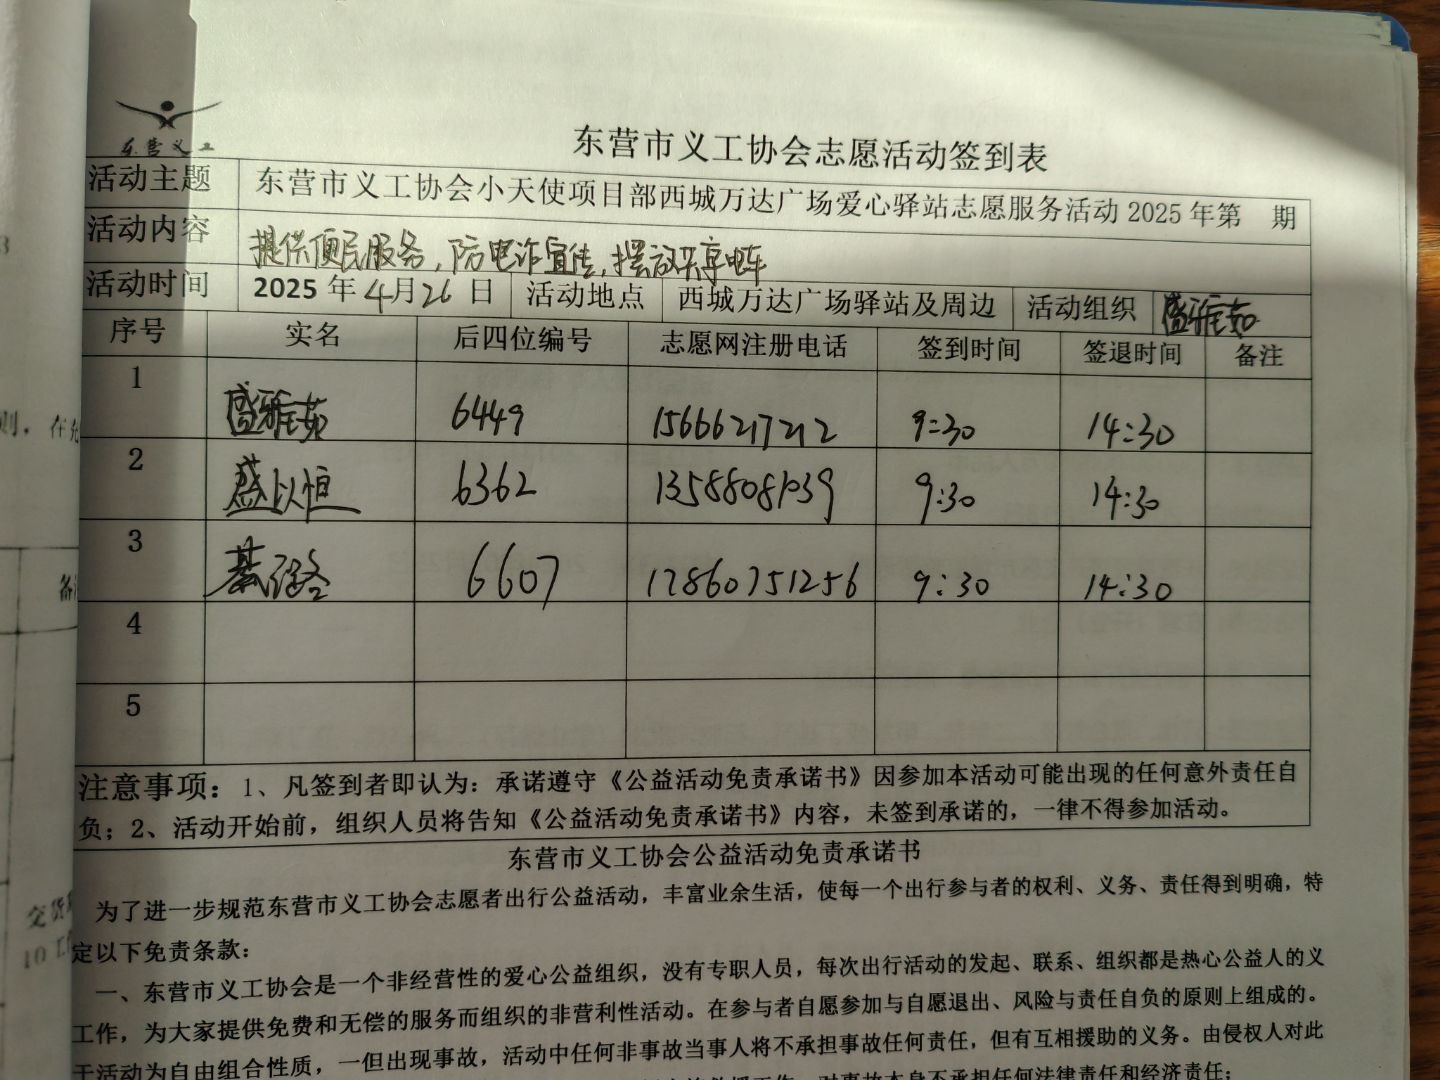 东营义工
东营市义工协会志愿活动签到表
活动主题 东营市义工协会小天使项目部西城万达广场爱心驿站志愿服务活动 2025 年第 期
活动内容 提供便民服务，防电诈宣传，摆放共享电车
活动时间 2025 年 4月 26 日 活动地点 西城万达广场驿站及周边 活动组织 盛雅茹
序号 实名 后四位编号 志愿网注册电话 签到时间 签退时间 备注
1 盛雅茹 6449 15666217212 9:30 14:30
2 盛以恒 6362 9:30 14:30
3 6607 17860751256 9:30 14:30
4
5
注意事项：1、凡签到者即认为：承诺遵守《公益活动免责承诺书》因参加本活动可能出现的任何意外责任自
负；2、活动开始前，组织人员将告知《公益活动免责承诺书》内容，未签到承诺的，一律不得参加活动。
东营市义工协会公益活动免责承诺书
为了进一步规范东营市义工协会志愿者出行公益活动，丰富业余生活，使每一个出行参与者的权利、义务、责任得到明确，特
定以下免责条款：
一、东营市义工协会是一个非经营性的爱心公益组织，没有专职人员，每次出行活动的发起、联系、组织都是热心公益人的义
工作，为大家提供免费和无偿的服务而组织的非营利性活动。在参与者自愿参加与自愿退出、风险与责任自负的原则上组成的。
于活动为自由组合性质，一但出现事故，活动中任何非事故当事人将不承担事故任何责任，但有互相援助的义务。由侵权人对此
对事故本身不承担任何法律责任和经济责任；